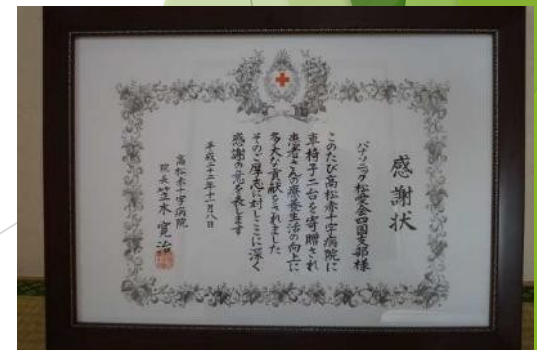 感謝状
パナソニック松愛会四国支部様
このたび高松赤十字病院に
車椅子二台を寄贈され
患者さんの療養生活の向上に
多大な貢献をされました
そのご厚志に対しここに深く
感謝の意を表します
平成二十二年十一月八日
高松赤十字病院
院長 笠木寛治